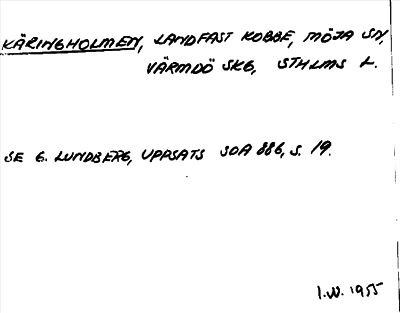 KÄRINGHOLMEN, LANDFAST KOBBE, MÖJA SN,
VÄRMDÖ SKG, STHLMS L.
SE G. LUNDBERG, UPPSATS SOA 886, S. 19.
I.W. 1955